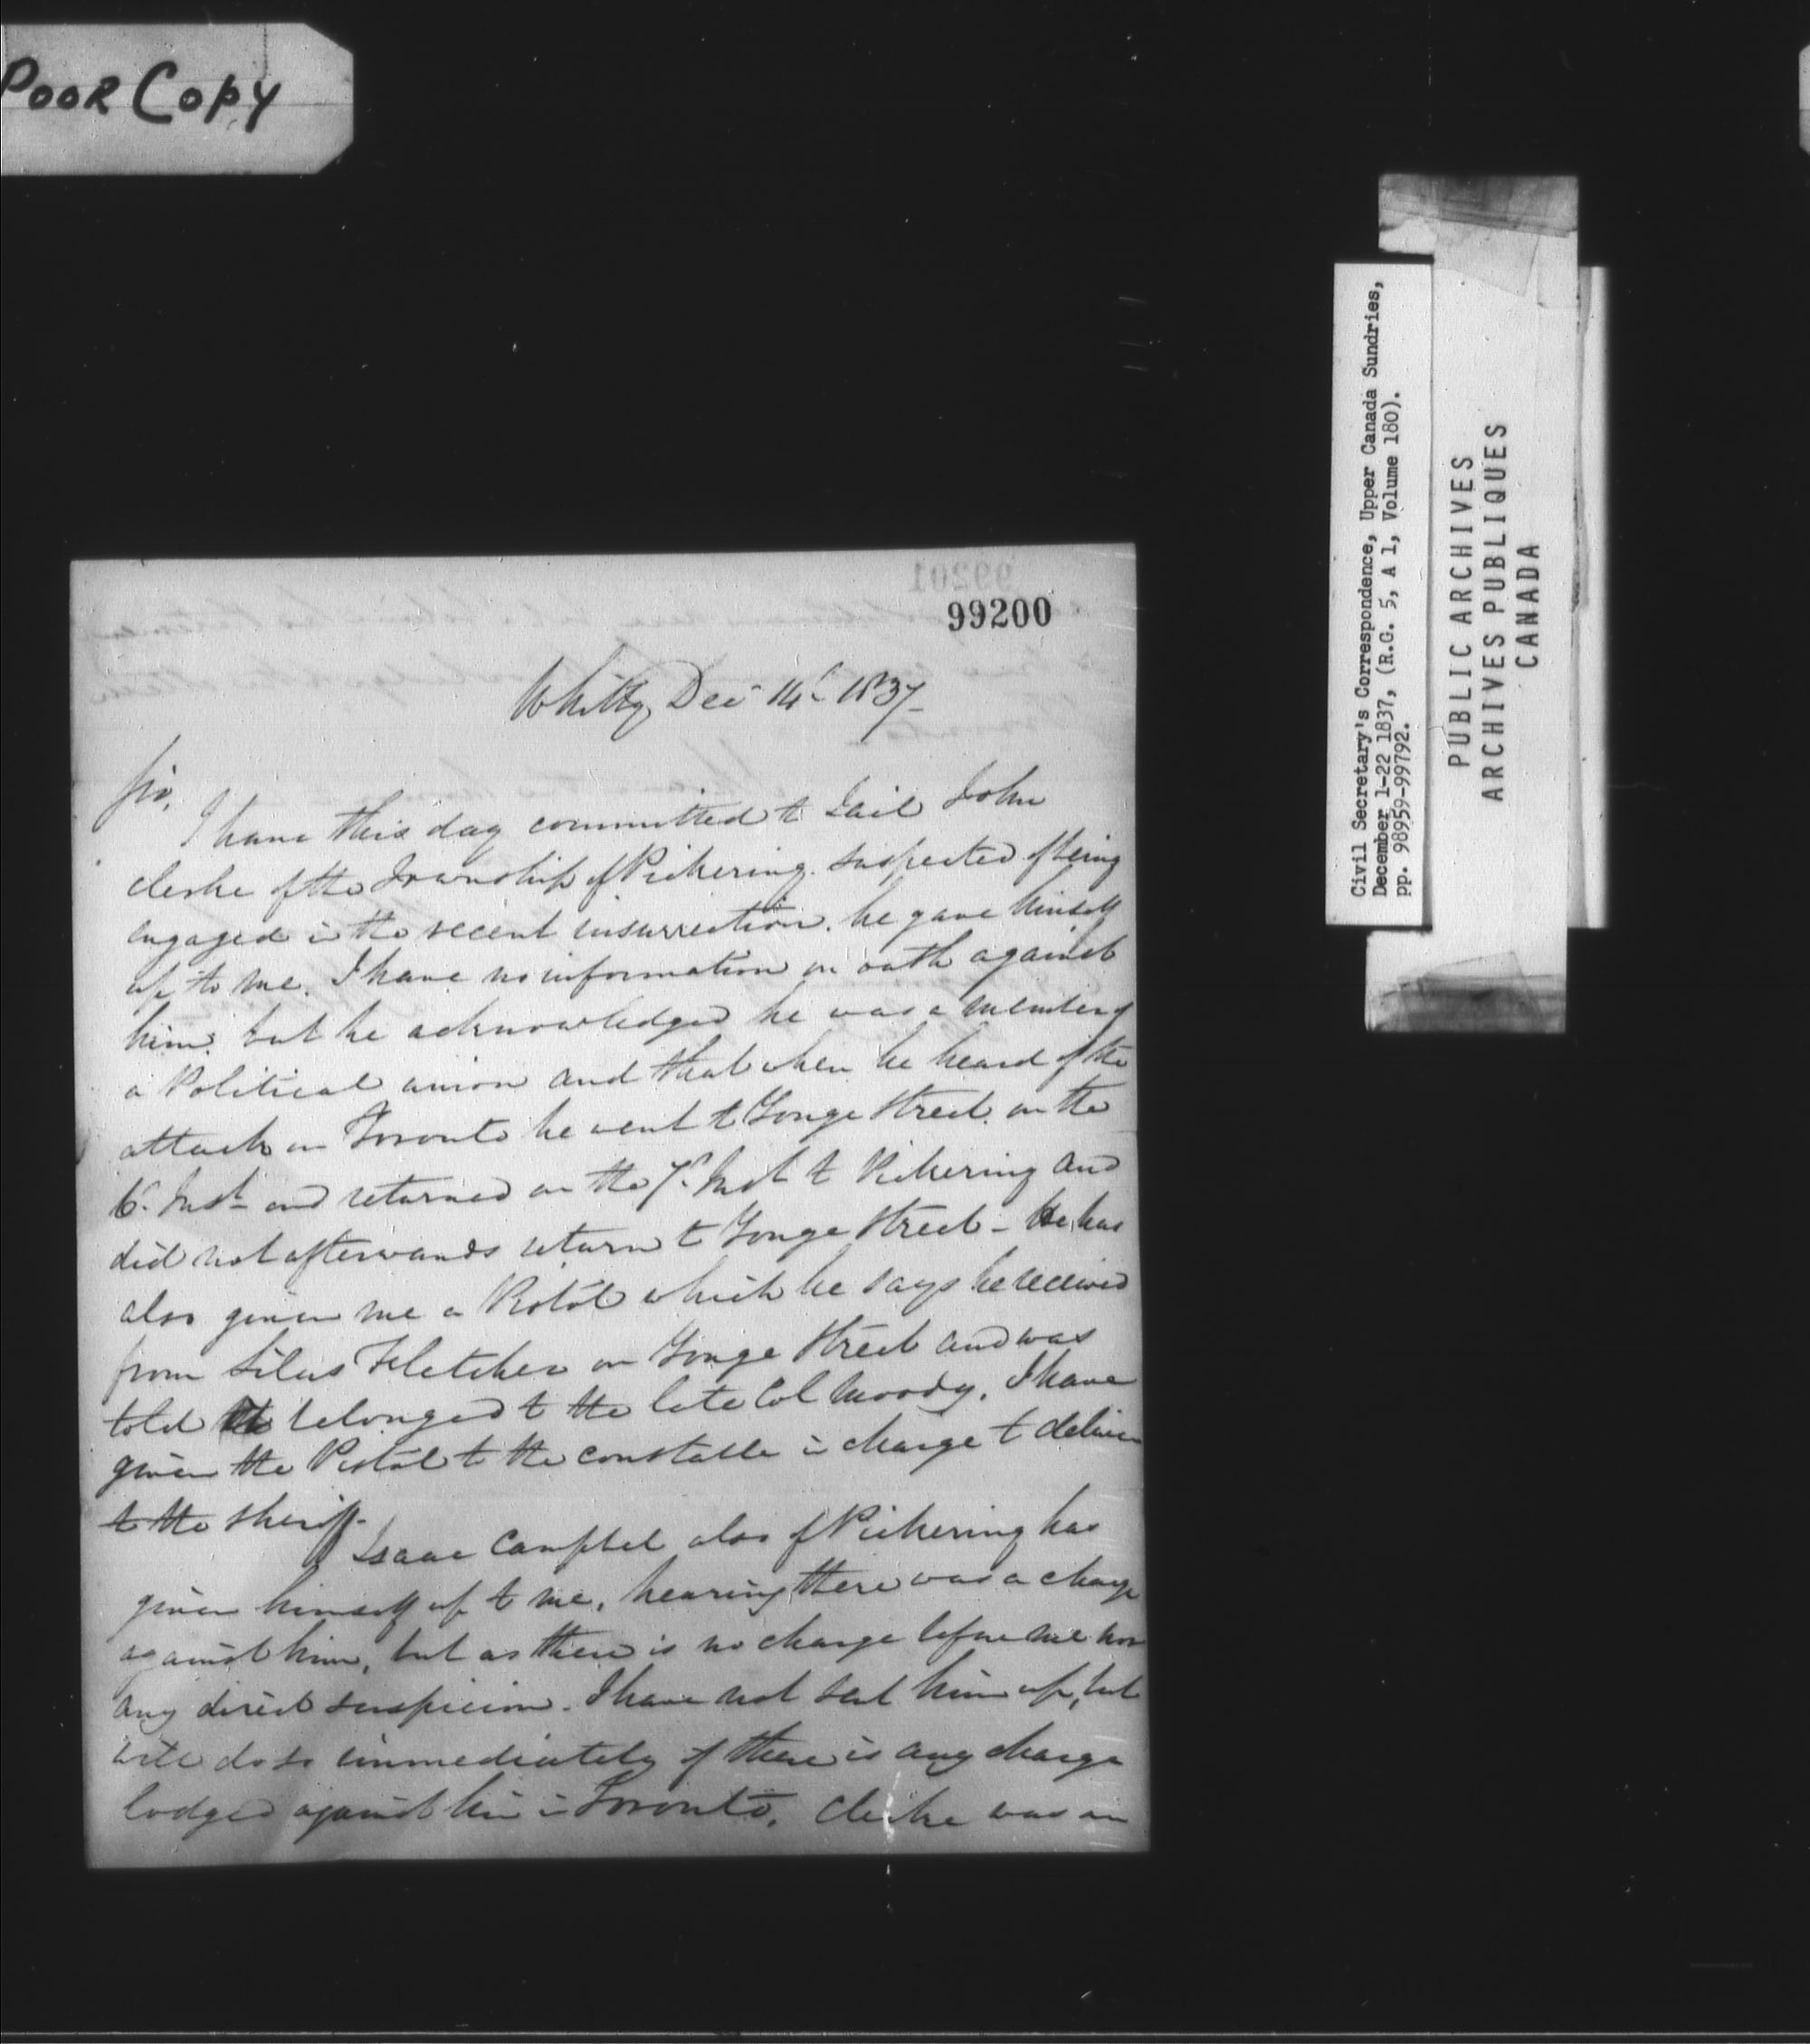 POOR COPY
99201
99200
Whitby Dec 14th 1837
Sir,
I have this day committed to Gail John
Clerke of the Township of Pickering suspected of being
engaged in the recent insurrection. he gave himself
up to me. I have no information on oath against
him, but he acknowledged he was a member of
a Political union and that when he heard of the
attack on Toronto he went to Yonge Street on the
6th Inst and returned on the 7th Inst to Pickering and
did not afterwards return to Yonge Street - He has
also given me a Pistol which he says he received
from Silas Fletcher on Yonge Street and was
told it belonged to the late Col Moody. I have
given the Pistol to the constable in charge to deliver
to the Sheriff.
Isaac Campbel also of Pickering has
given himself up to me, hearing there was a charge
against him, but as there is no charge before me nor
any direct suspicion. I have not sent him up, but
will do so immediately if there is any charge
lodged against him in Toronto. Clerke was on
Civil Secretary's Correspondence, Upper Canada Sundries,
December 1-22 1837, (R.G. 5, A 1, Volume 180).
pp. 98959-99792.
PUBLIC ARCHIVES
ARCHIVES PUBLIQUES
CANADA